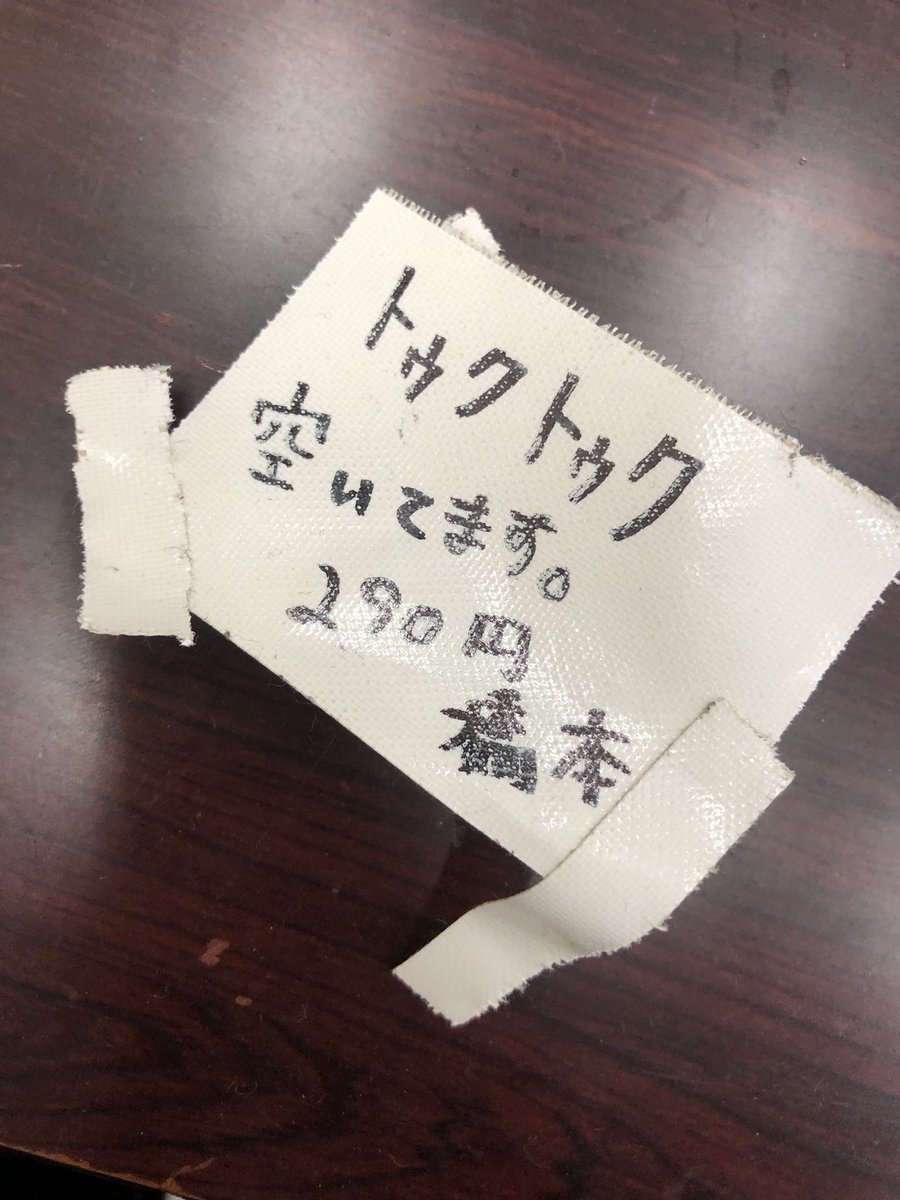 トゥクトゥク
空いてます。
290円
橋本